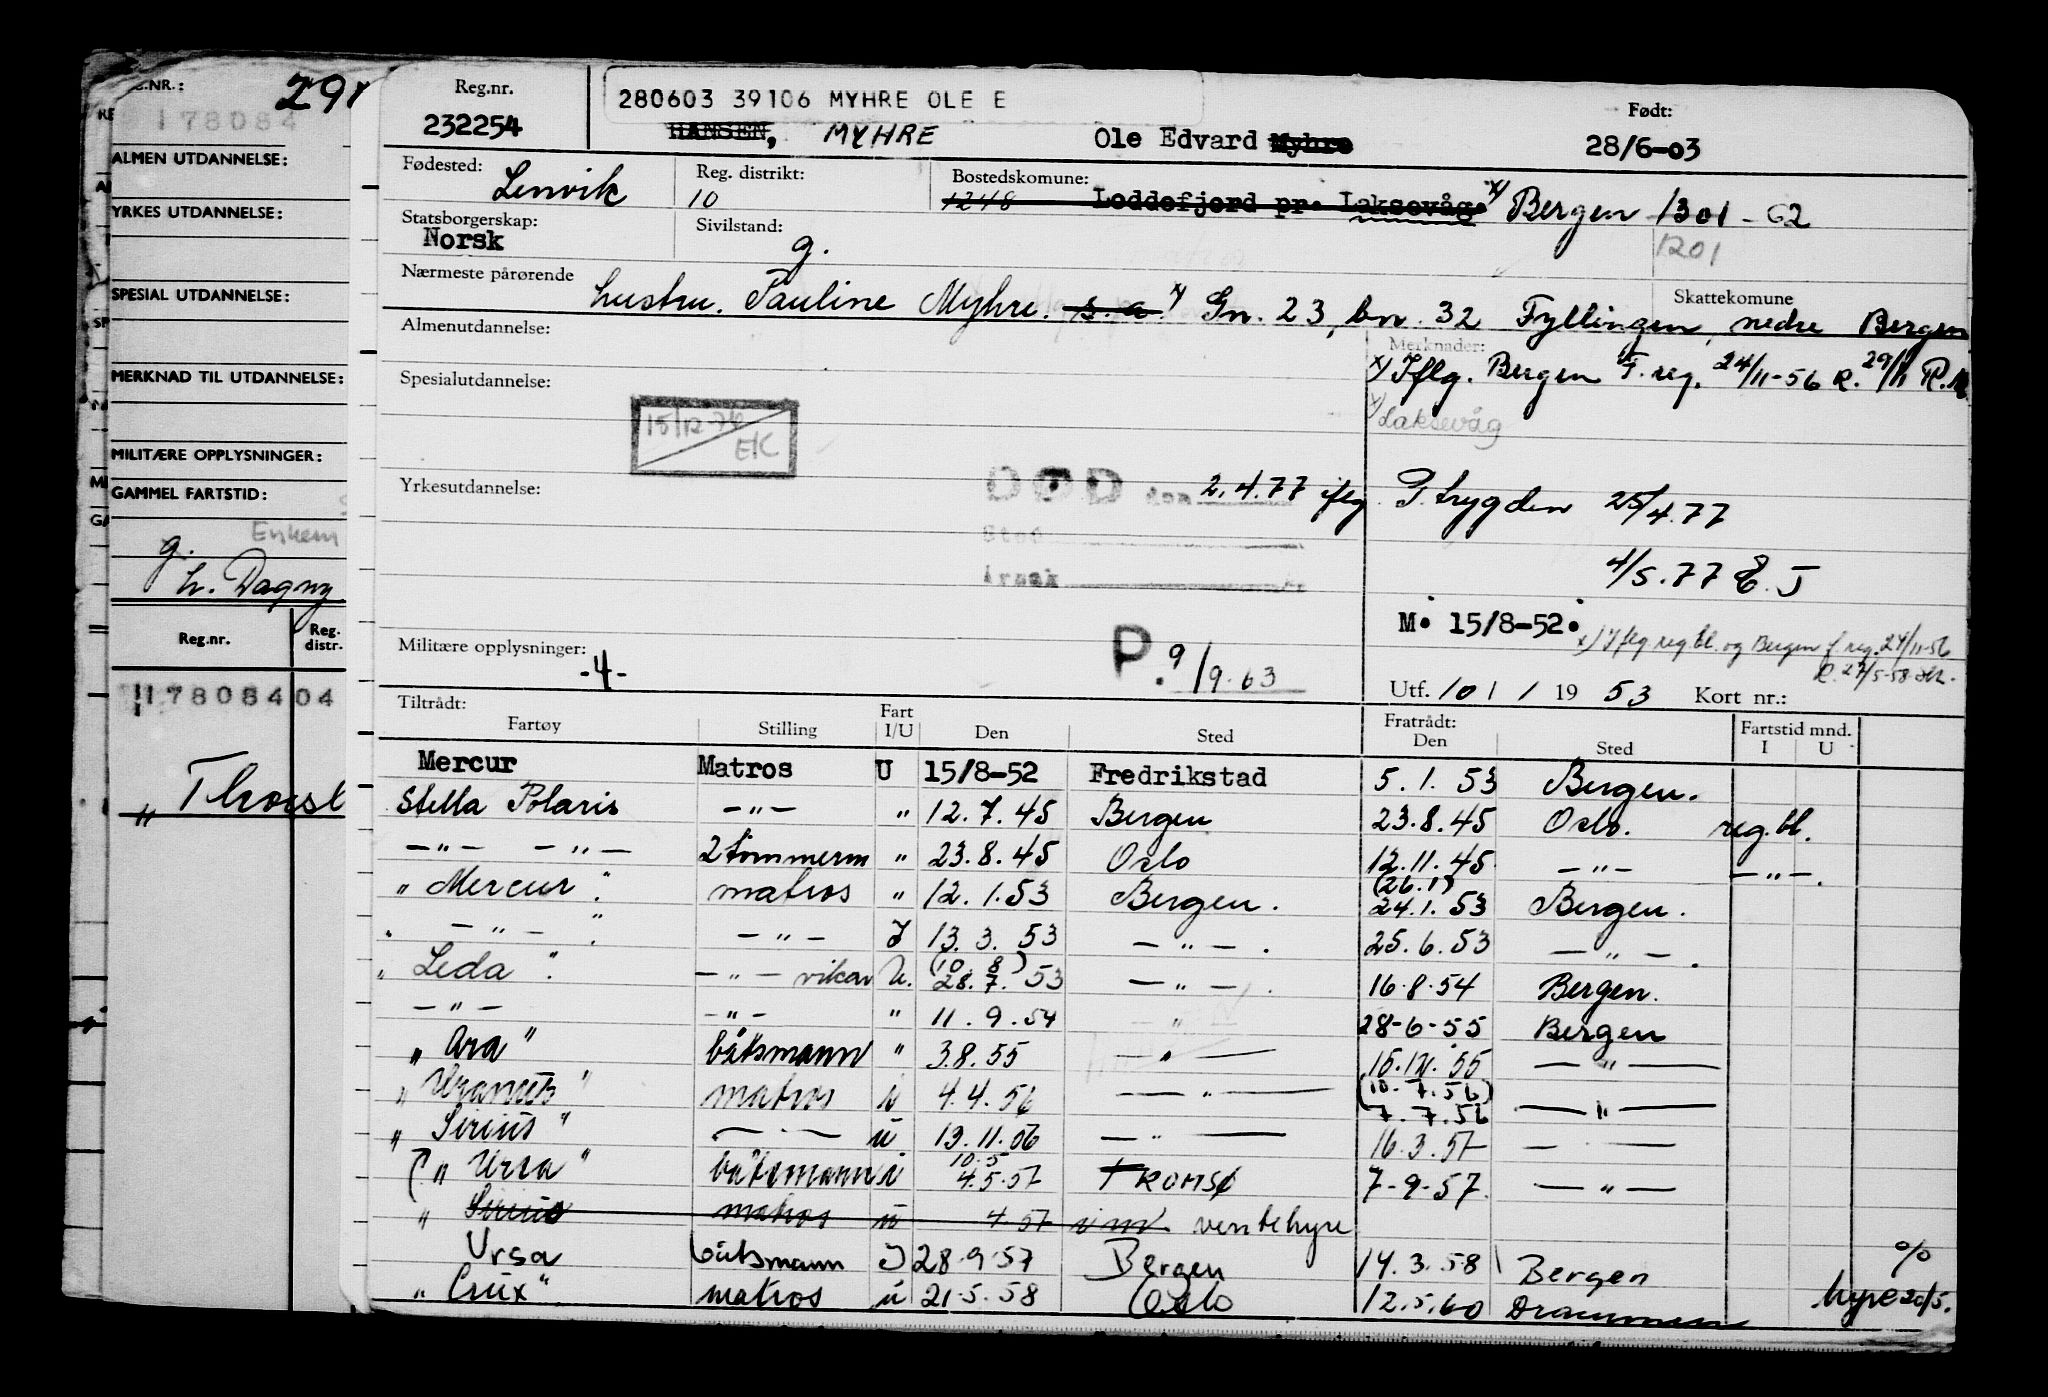 291
178084
ALMEN UTDANNELSE:
YRKES UTDANNELSE:
SPESIAL UTDANNELSE:
MERKNAD TIL UTDANNELSE:
MILITÆRE OPPLYSNINGER:
GAMMEL FARTSTID:
Enkem
g.
h. Dagny
Reg.nr. Reg. distr.
178084 04
" Thorsh
Reg.nr. 232254
280603 39106 MYHRE OLE E
HANSEN, MYHRE Ole Edvard Myhre
Født: 28/6-03
Fødested: Lenvik
Reg. distrikt: 10
Bostedskommune: 1248 Loddefjord pr. Laksevåg x) Bergen 1301 - 62
1201
Statsborgerskap: Norsk
Sivilstand: g.
Nærmeste pårørende hustru. Pauline Myhre. s. a. x) Gn. 23, bn. 32 Fyllingen, nedre Bergen
Skattekomune
Almenutdannelse:
Merknader:
x) Iflg. Bergen F. reg. 24/11-56 R. 29/11 R.
x) Laksevåg
Spesialutdannelse:
15/12-76 EK
Yrkesutdannelse:
DØD den 2.4.77 iflg P. trygden 25/4.77
Sted
Årsak
4/5.77 E. J
M. 15/8-52.
x) Iflg reg bl. og Bergen f. reg. 24/11-56
Militære opplysninger: -4-
P. 9/9.63
Utf. 10 1 / 1953 Kort nr.:
Tiltrådt: Fartøy Stilling Fart I/U Den Sted Fratrådt: Den Sted Fartstid mnd. I U
Mercur Matros U 15/8-52 Fredrikstad 5. 1. 53 Bergen.
Stella Polaris -"- " 12. 7. 45 Bergen 23. 8. 45 Oslo. reg. bl.
-"- -"- 2 tømmerm " 23. 8. 45 Oslo 12. 11. 45 -"- -"-.
" Mercur". matros " 12. 1. 53 Bergen. (26. 1) 24. 1. 53 Bergen.
" -"- " -"- I 13. 3. 53 -"-. 25. 6. 53 -"-.
" Leda". -"- vikar U. (10. 8) 28. 7. 53 -"-. 16. 8. 54 Bergen.
-"- -"- " 11. 9. 54 " 28-6-55 Bergen
" Ara" båtsmann " 3.8. 55 -"- 15. 12. 55 -"-
" Uranus" matros i 4. 4. 56 -"- (10. 7. 56) 7. 7. 56 -"-
" Sirius" -"- u 13. 11. 56 -"- 16. 3. 57 -"-
" Ursa" båtsmann i 10.5 4. 5. 57 TROMSØ 7-9-57. -"-
" Sirius matros u 4 57 ventehyre
Ursa båtsmann I 28. 9. 57 Bergen 14. 3. 58 Bergen
" Crux" matros u 21. 5. 58 Oslo 12. 5. 60 Drammen % hyre 20/5.